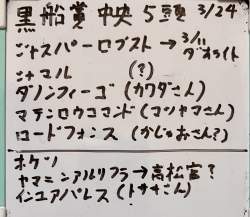 黒船賞 中央 5頭 3/24
ジャスパーロブスト→3/11 ダイオライト
シャマル (?)
ダノンフィーゴ (カワダさん)
マテンロウコマンド (マツヤマさん)
ロードフォンス (かじゅおさん?)
ホケツ
ヤマニンアルリフラ→高松宮?
インユアパレス (トサキさん)